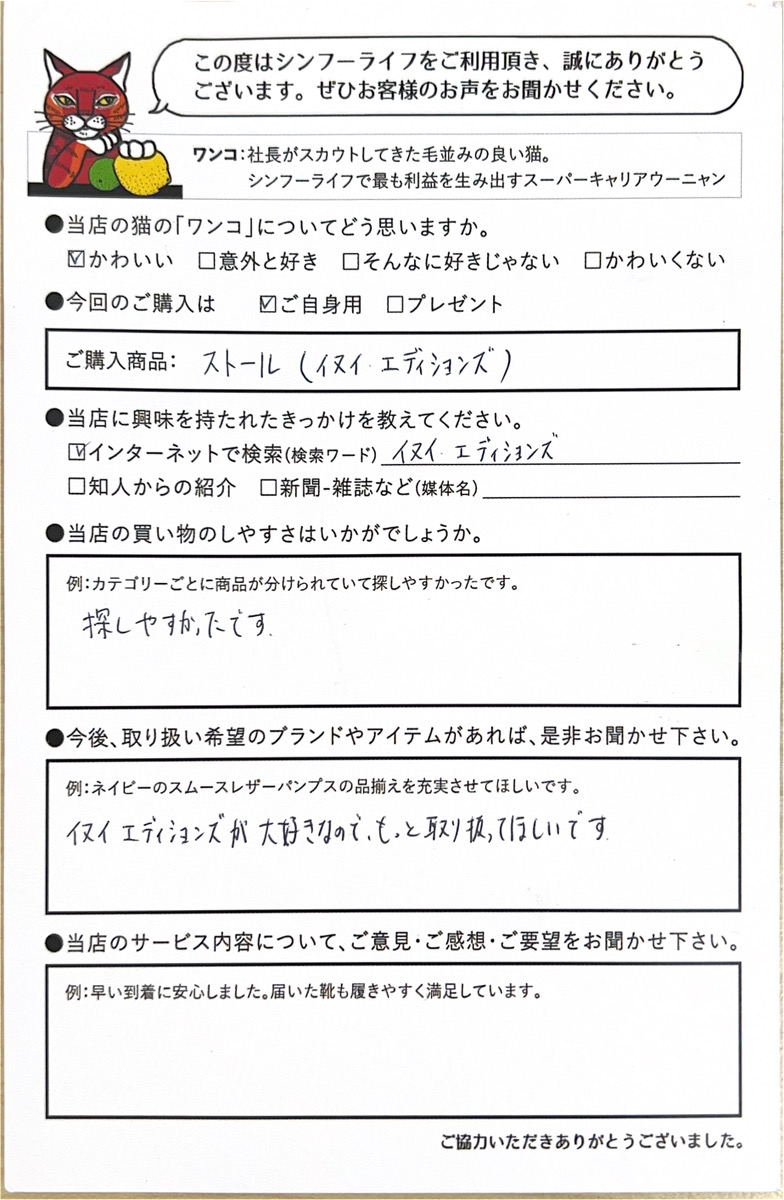 この度はシンフーライフをご利用頂き、誠にありがとう
ございます。ぜひお客様のお声をお聞かせください。
ワンコ：社長がスカウトしてきた毛並みの良い猫。
シンフーライフで最も利益を生み出すスーパーキャリアウーニャン
●当店の猫の「ワンコ」についてどう思いますか。
☑かわいい □意外と好き □そんなに好きじゃない □かわいくない
●今回のご購入は ☑ご自身用 □プレゼント
ご購入商品： ストール (イヌイ エディションズ)
●当店に興味を持たれたきっかけを教えてください。
☑インターネットで検索(検索ワード) イヌイ エディションズ
□知人からの紹介 □新聞-雑誌など(媒体名)
●当店の買い物のしやすさはいかがでしょうか。
例：カテゴリーごとに商品が分けられていて探しやすかったです。
探しやすかったです.
●今後、取り扱い希望のブランドやアイテムがあれば、是非お聞かせ下さい。
例：ネイビーのスムースレザーパンプスの品揃えを充実させてほしいです。
イヌイ エディションズが大好きなので、もっと取り扱ってほしいです
●当店のサービス内容について、ご意見・ご感想・ご要望をお聞かせ下さい。
例：早い到着に安心しました。届いた靴も履きやすく満足しています。
ご協力いただきありがとうございました。